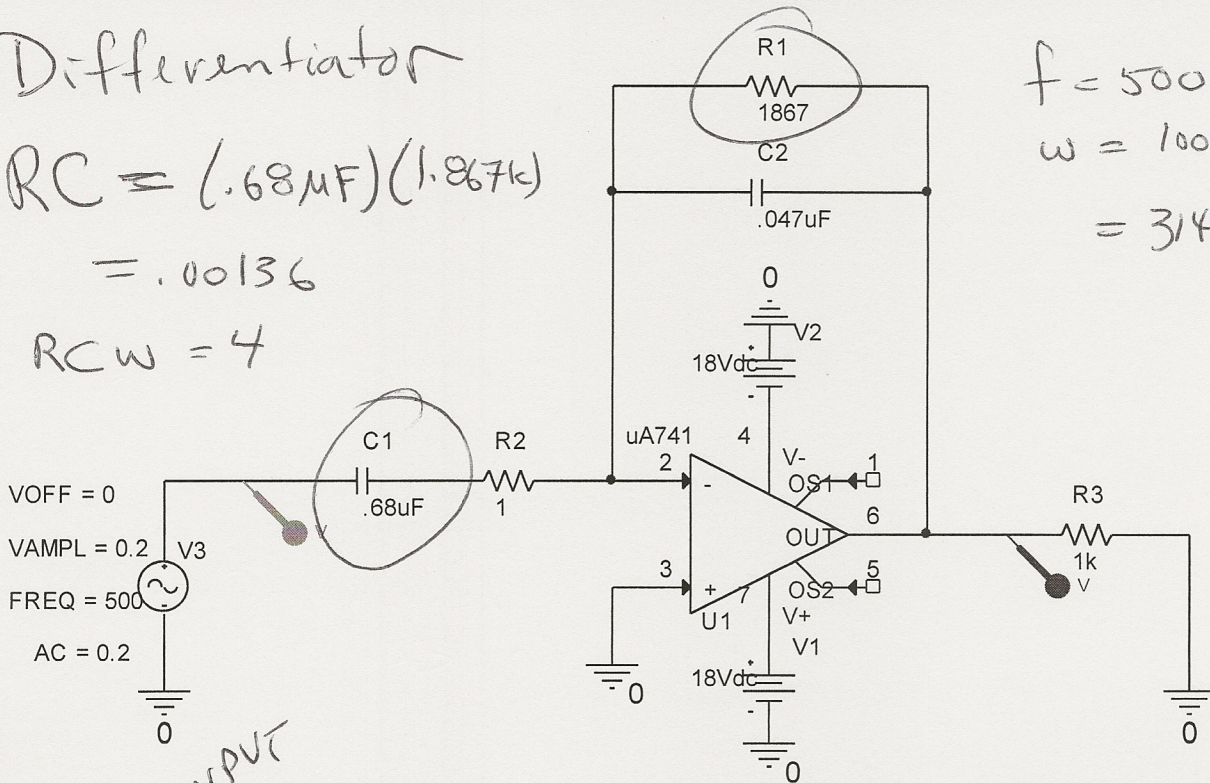 Differentiator
RC = (.68μF)(1.867k)
= .00136
RCW = 4
f = 500
w = 100
= 314
R1
1867
C2
.047uF
0
V2
18Vdc
uA741
4
V-
2
-
OS1
1
6
OUT
3
+
7
OS2
5
U1
V+
V1
18Vdc
0
0
C1
.68uF
R2
1
VOFF = 0
VAMPL = 0.2
V3
FREQ = 500
AC = 0.2
0
V
R3
1k
V
0